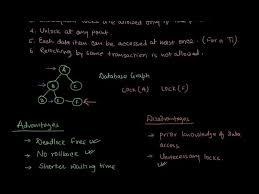 4. Unlock at any point.
5. Each data item can be accessed at most once. (For a Ti)
6. Relocking by same transaction is not allowed.
Database Graph
A
LOCK(A)
LOCK(F)
Advantages
→ Deadlock free
→ No rollback
→ Shorter waiting time
Disadvantages
→ prior knowledge of data
access
→ Unnecessary locks.